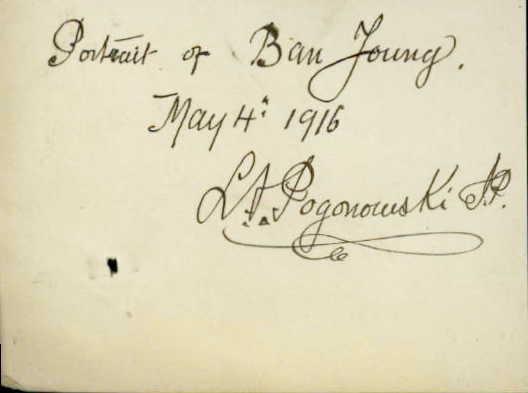 Portrait of Ban Joung.
May 4: 1916
L.A. Pogonowski J.P.